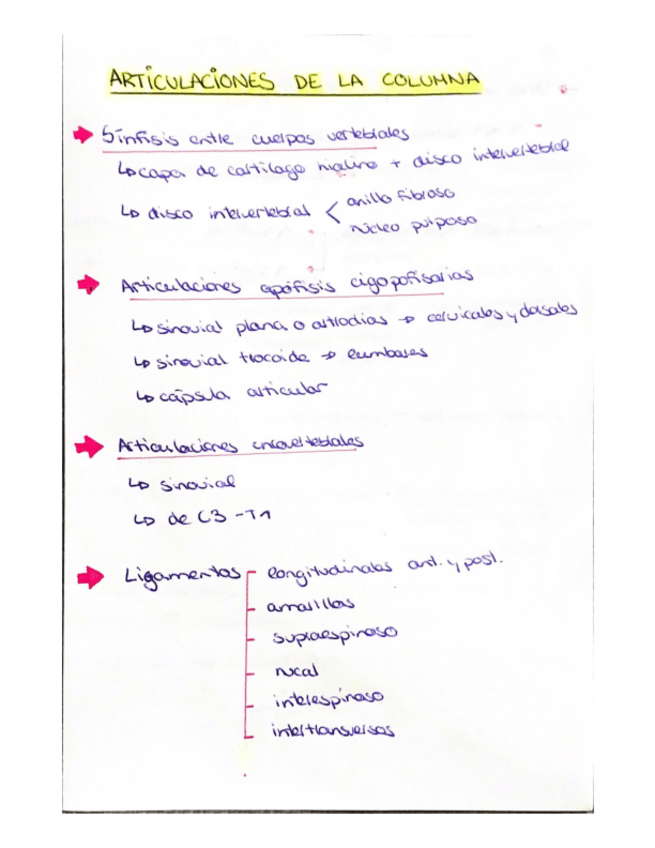 ARTICULACIONES DE LA COLUMNA
Sínfisis entre cuerpos vertebrales
↳ capa de cartílago hialino + disco intervertebral
↳ disco intervertebral < anillo fibroso
núcleo pulposo
Articulaciones apófisis cigapofisarias
↳ sinovial plana o artrodias → cervicales y dorsales
↳ sinovial trocoide → lumbares
↳ cápsula articular
Articulaciones uncovertebrales
↳ sinovial
↳ de C3 - T1
Ligamentos longitudinales ant. y post.
amarillos
supraespinoso
nucal
interespinoso
intertransversos